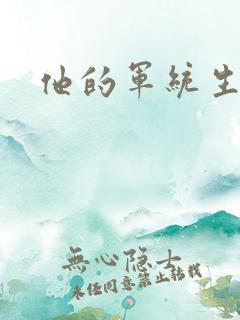 他的军統生
無心隐士
未经同意禁止转载